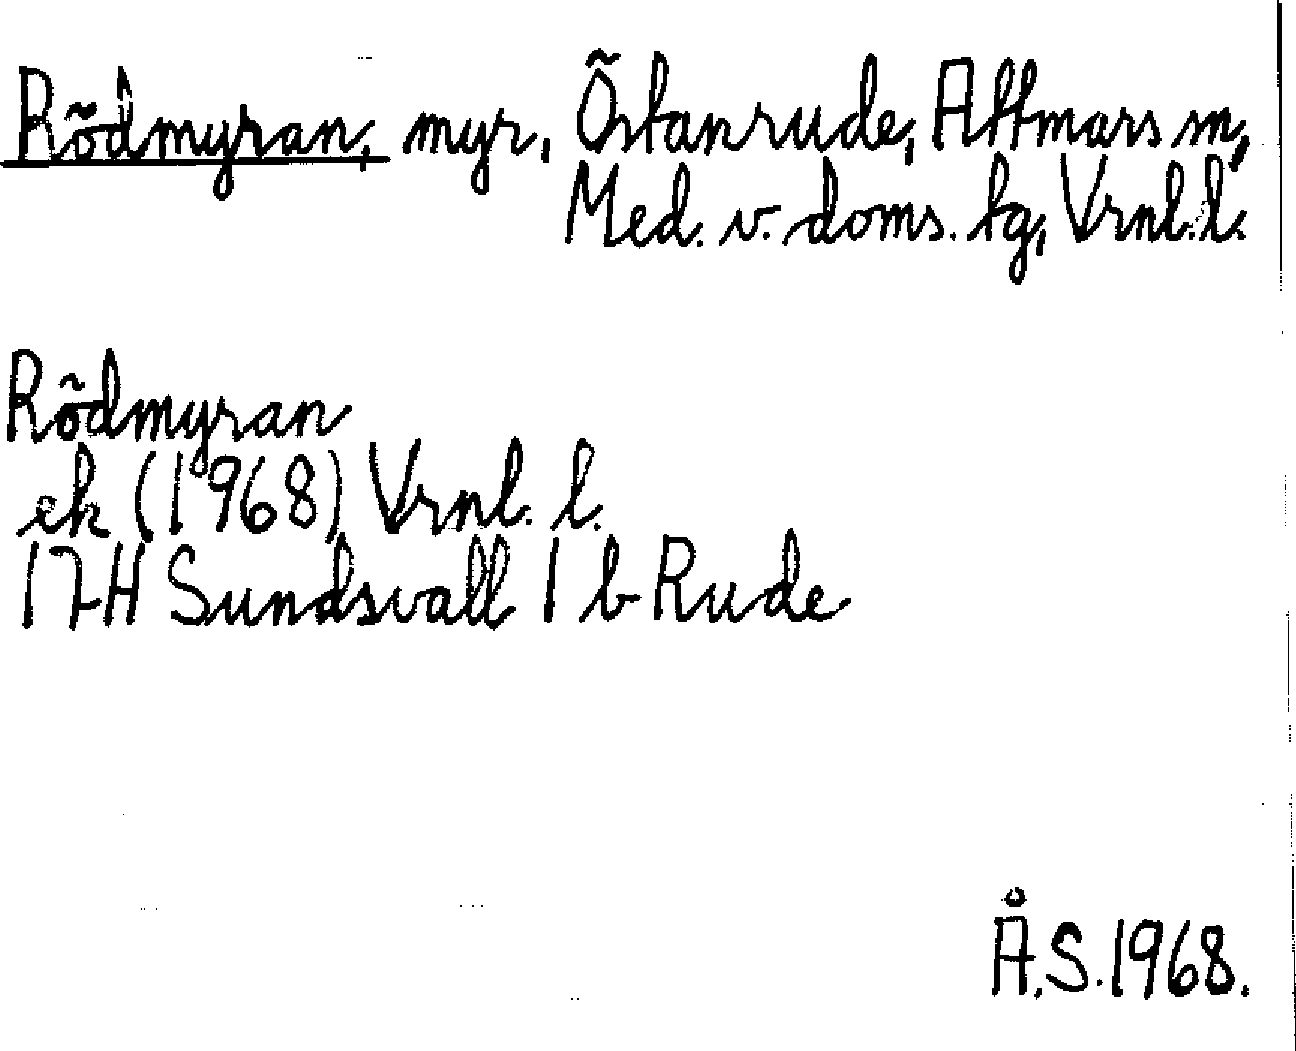 Rödmyran, myr, Östanrude, Attmars sn,
Med. v. doms. tg, Vrnl. l.
Rödmyran
ek (1968) Vrnl. l.
17H Sundsvall 1 b Rude
Å.S. 1968.